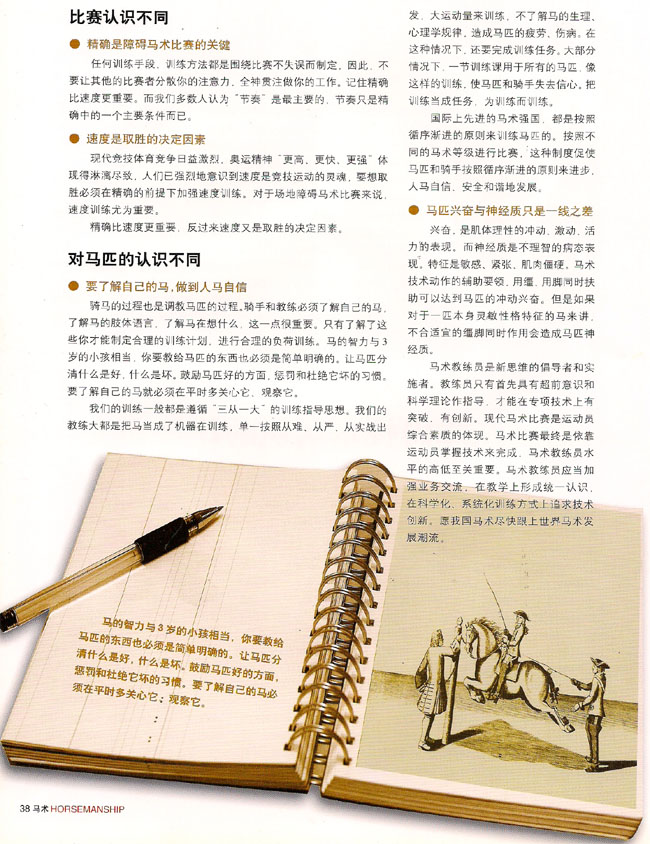 比赛认识不同
● 精确是障碍马术比赛的关键
任何训练手段、训练方法都是围绕比赛不失误而制定。因此、不
要让其他的比赛者分散你的注意力、全神贯注做你的工作。记住精确
比速度更重要。而我们多数人认为“节奏”是最主要的、节奏只是精
确中的一个主要条件而已。
● 速度是取胜的决定因素
现代竞技体育竞争日益激烈、奥运精神“更高、更快、更强”体
现得淋漓尽致、人们已强烈地意识到速度是竞技运动的灵魂、要想取
胜必须在精确的前提下加强速度训练。对于场地障碍马术比赛来说、
速度训练尤为重要。
精确比速度更重要、反过来速度又是取胜的决定因素。
对马匹的认识不同
● 要了解自己的马,做到人马自信
骑马的过程也是调教马匹的过程。骑手和教练必须了解自己的马、
了解马的肢体语言、了解马在想什么、这一点很重要。只有了解了这
些你才能制定合理的训练计划、进行合理的负荷训练。马的智力与3
岁的小孩相当、你要教给马匹的东西也必须是简单明确的。让马匹分
清什么是好、什么是坏。鼓励马匹好的方面、惩罚和杜绝它坏的习惯。
要了解自己的马就必须在平时多关心它、观察它。
我们的训练一般都是遵循“三从一大”的训练指导思想。我们的
教练大都是把马当成了机器在训练、单一按照从难、从严、从实战出
发、大运动量来训练、不了解马的生理、
心理学规律、造成马匹的疲劳、伤病。在
这种情况下、还要完成训练任务。大部分
情况下、一节训练课用于所有的马匹、像
这样的训练、使马匹和骑手失去信心。把
训练当成任务、为训练而训练。
国际上先进的马术强国、都是按照
循序渐进的原则来训练马匹的。按照不
同的马术等级进行比赛、这种制度促使
马匹和骑手按照循序渐进的原则来进步、
人马自信、安全和谐地发展。
● 马匹兴奋与神经质只是一线之差
兴奋、是肌体理性的冲动、激动、活
力的表现。而神经质是不理智的病态表
现、特征是敏感、紧张、肌肉僵硬。马术
技术动作的辅助要领、用缰、用脚同时扶
助可以达到马匹的冲动兴奋。但是如果
对于一匹本身灵敏性格特征的马来讲、
不合适宜的缰脚同时作用会造成马匹神
经质。
马术教练员是新思维的倡导者和实
施者。教练员只有首先具有超前意识和
科学理论作指导、才能在专项技术上有
突破、有创新。现代马术比赛是运动员
综合素质的体现。马术比赛最终是依靠
运动员掌握技术来完成、马术教练员水
平的高低至关重要。马术教练员应当加
强业务交流、在教学上形成统一认识、
在科学化、系统化训练方式上追求技术
创新。愿我国马术尽快跟上世界马术发
展潮流。
马的智力与3岁的小孩相当，你要教给
马匹的东西也必须是简单明确的。让马匹分
清什么是好，什么是坏。鼓励马匹好的方面，
惩罚和杜绝它坏的习惯。要了解自己的马必
须在平时多关心它；观察它。
38 马术 HORSEMANSHIP